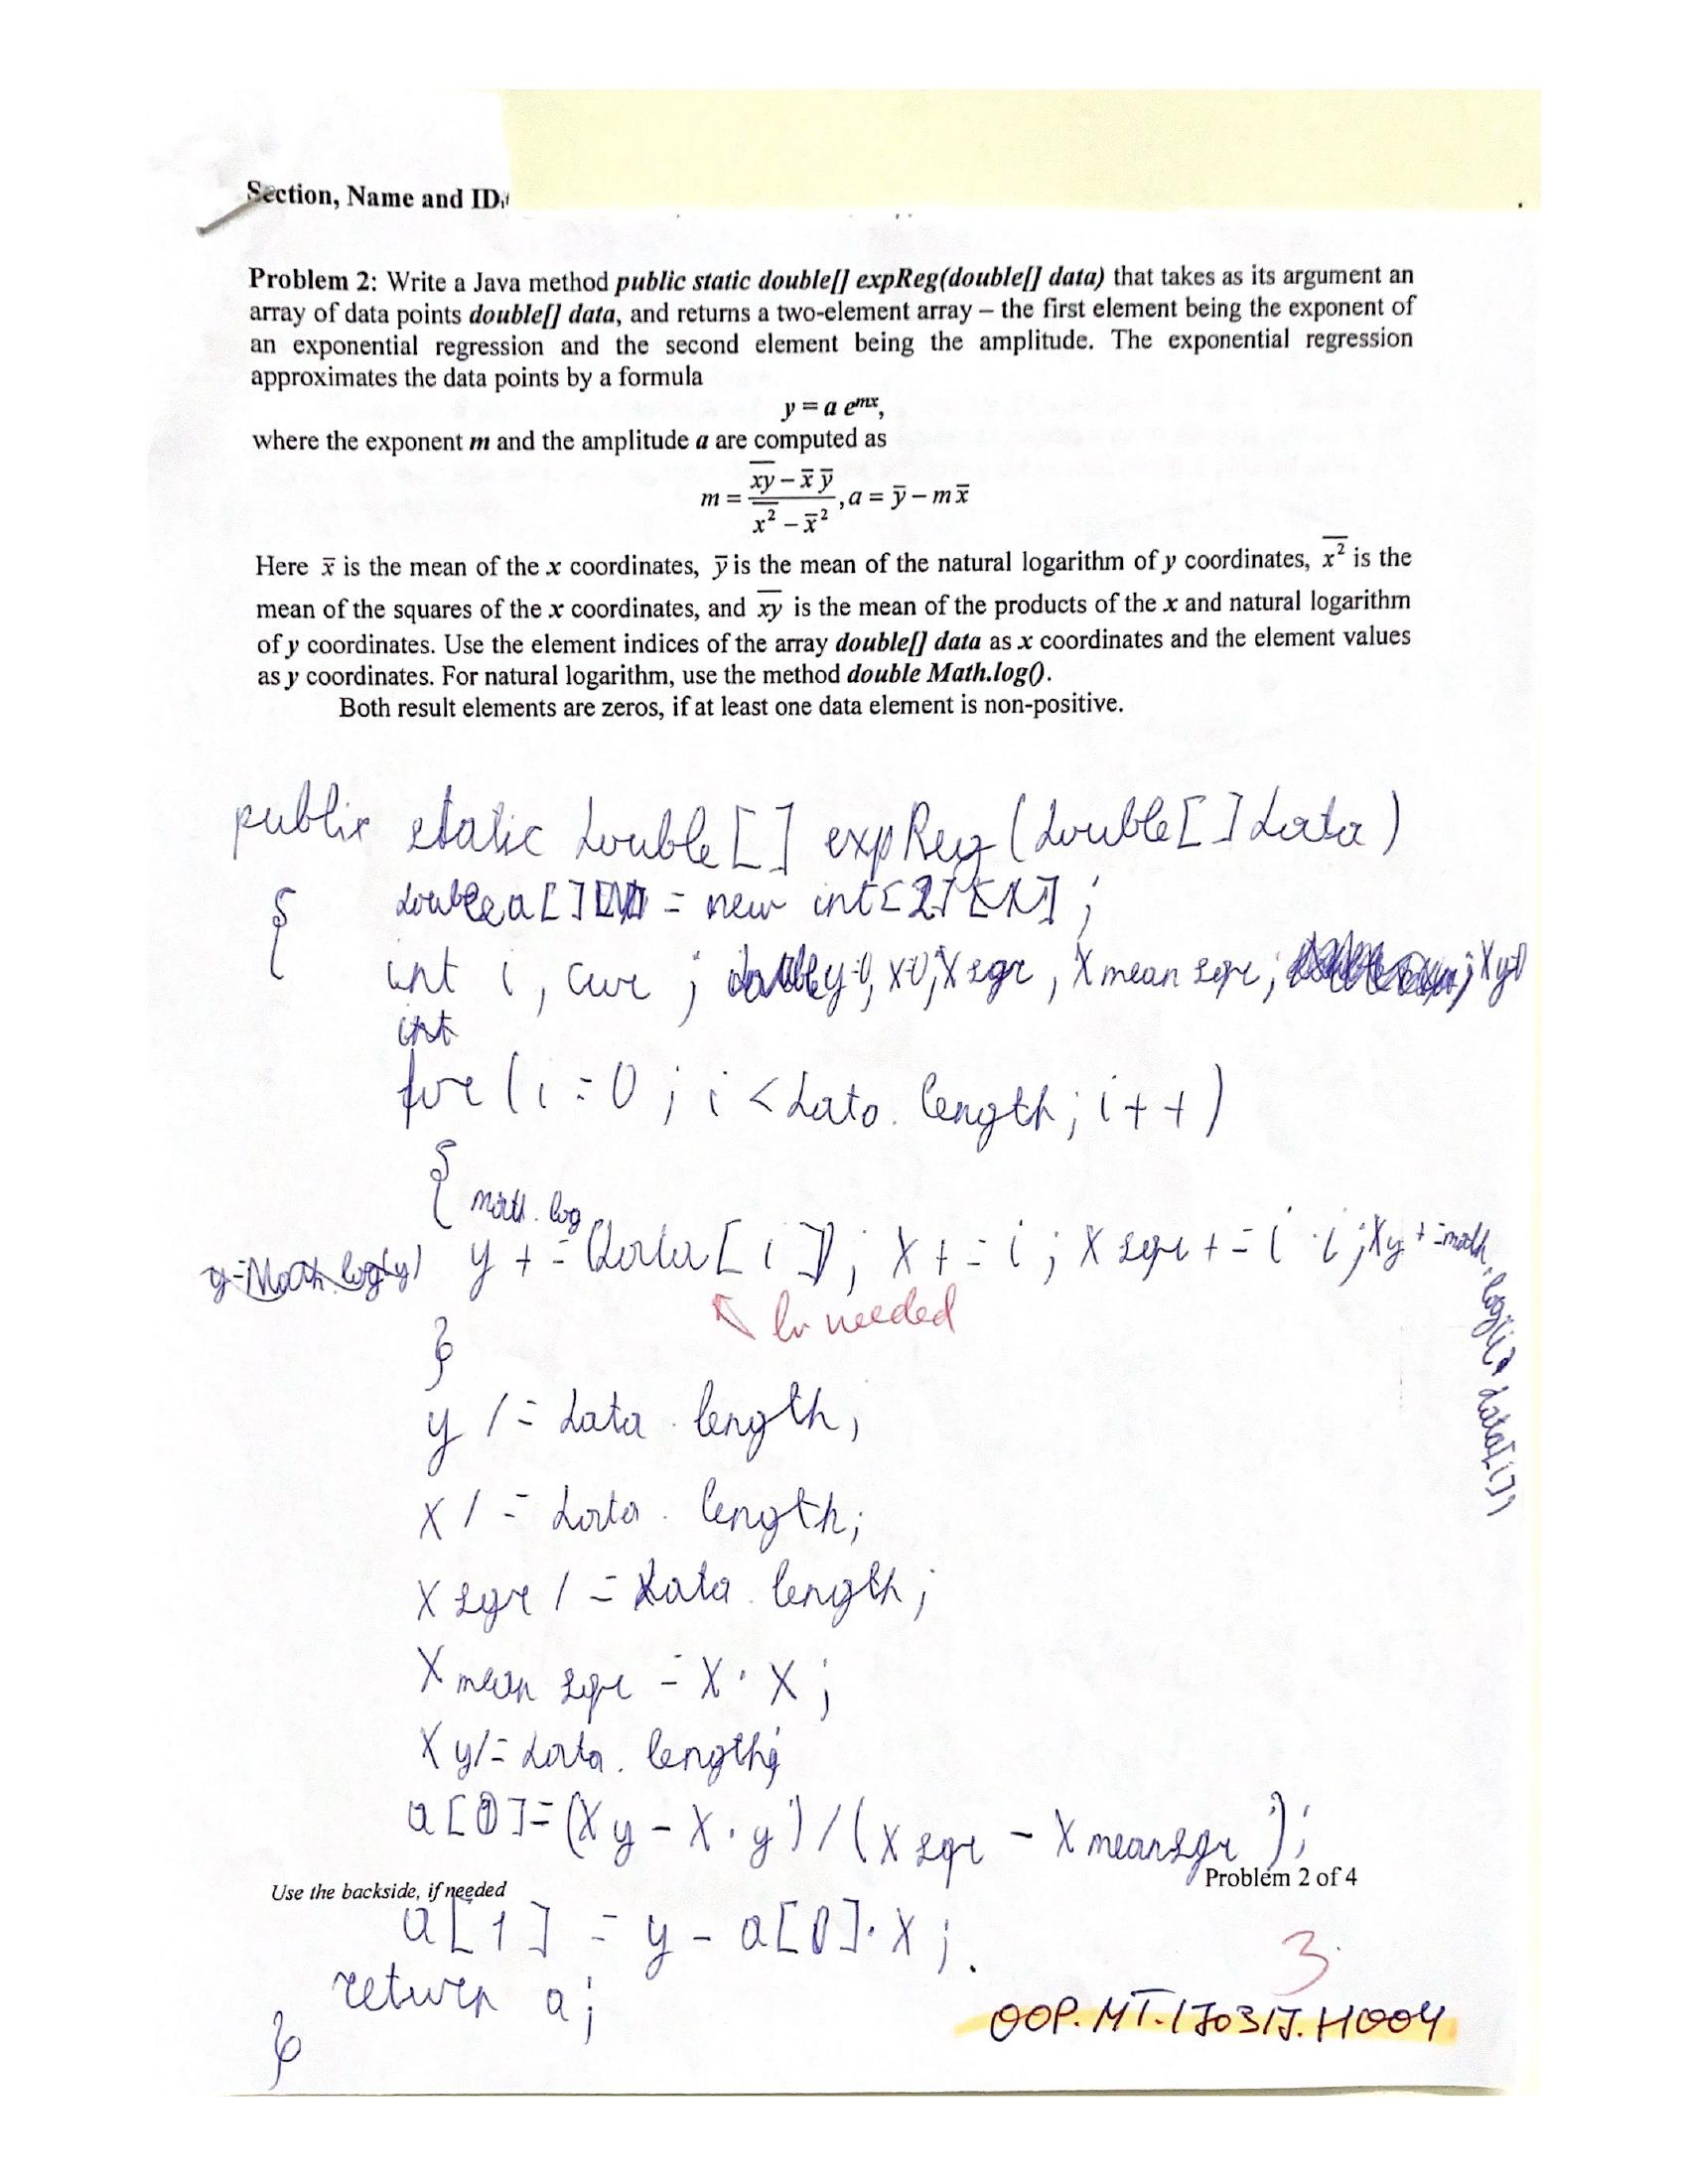 Section, Name and ID
Problem 2: Write a Java method public static double[] expReg(double[] data) that takes as its argument an
array of data points double[] data, and returns a two-element array – the first element being the exponent of
an exponential regression and the second element being the amplitude. The exponential regression
approximates the data points by a formula
y = a e^{mx},
where the exponent m and the amplitude a are computed as
m = \frac{\overline{xy} - \overline{x}\,\overline{y}}{\overline{x^2} - \overline{x}^2}, a = \overline{y} - m\overline{x}
Here x̅ is the mean of the x coordinates, y̅ is the mean of the natural logarithm of y coordinates, \overline{x^2} is the
mean of the squares of the x coordinates, and \overline{xy} is the mean of the products of the x and natural logarithm
of y coordinates. Use the element indices of the array double[] data as x coordinates and the element values
as y coordinates. For natural logarithm, use the method double Math.log().
Both result elements are zeros, if at least one data element is non-positive.
public static double[] expReg(double[] data)
{ double a[] = new int[2];
int i, cur; double y=0, x=0, Xsqr, Xmean sqr; Xy=0
int
for (i=0; i<data.length; i++)
{
math.log
y += (data[i]); X += i; Xsqr += i·i; Xy += math.log(i · data[i])
y=Math.log(y)
ln needed
}
y /= data.length;
X /= data.length;
Xsqr /= data.length;
Xmean sqr = X·X;
Xy /= data.length;
a[0]=(Xy - X·y)/(Xsqr - Xmeansqr);
Problem 2 of 4
Use the backside, if needed
a[1] = y - a[0]·X;
return a;
}
3
OOP.MT.170317.H004